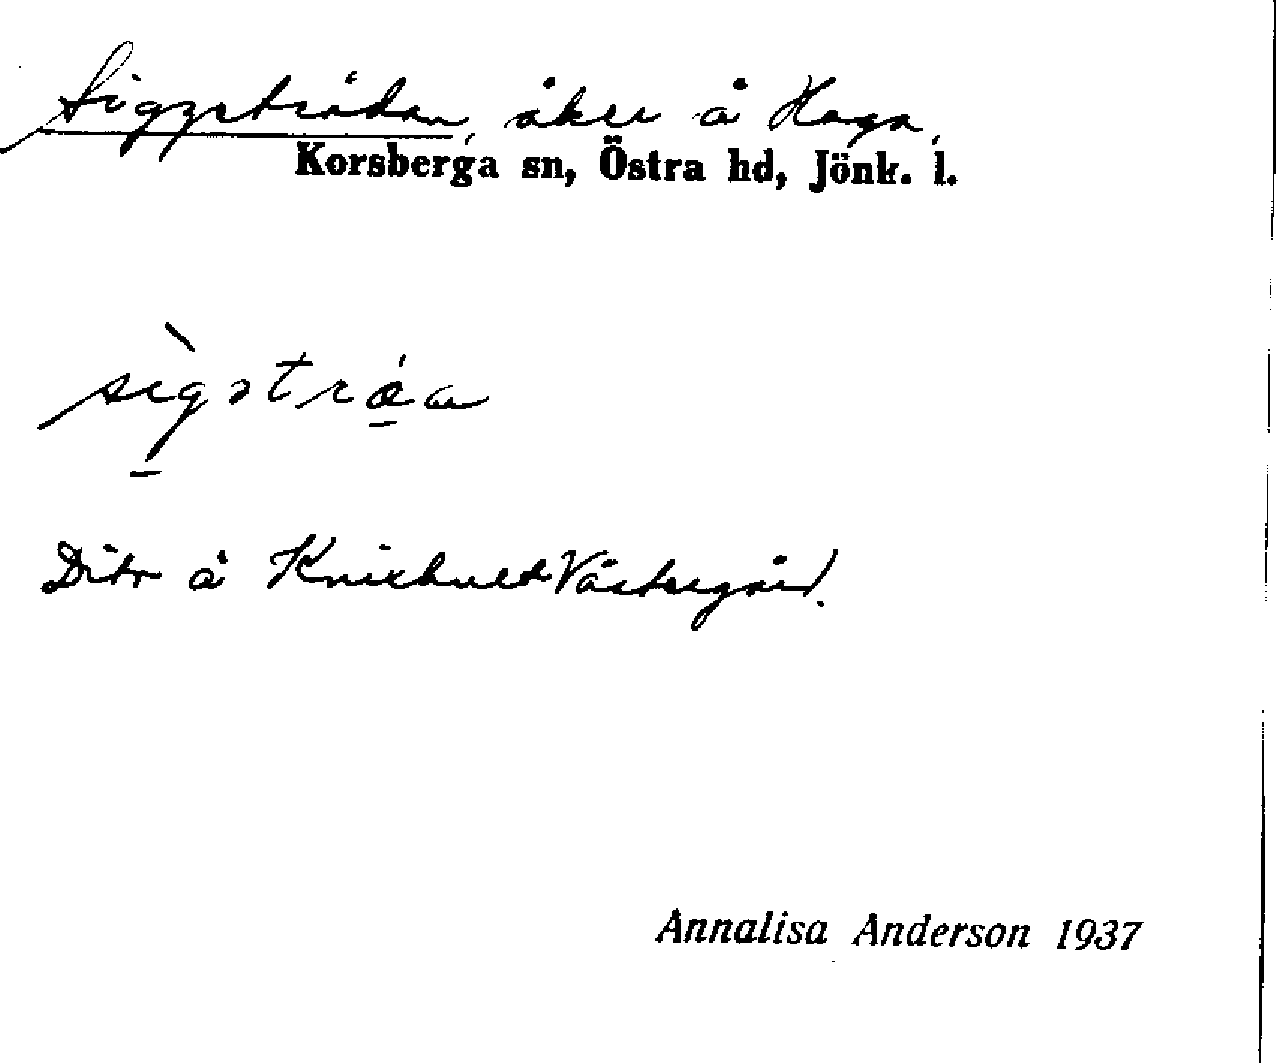 Siggstrådan, åker å Haga,
Korsberga sn, Östra hd, Jönk. l.
sìgstráa
Dito å Knixhult Västregård.
Annalisa Anderson 1937